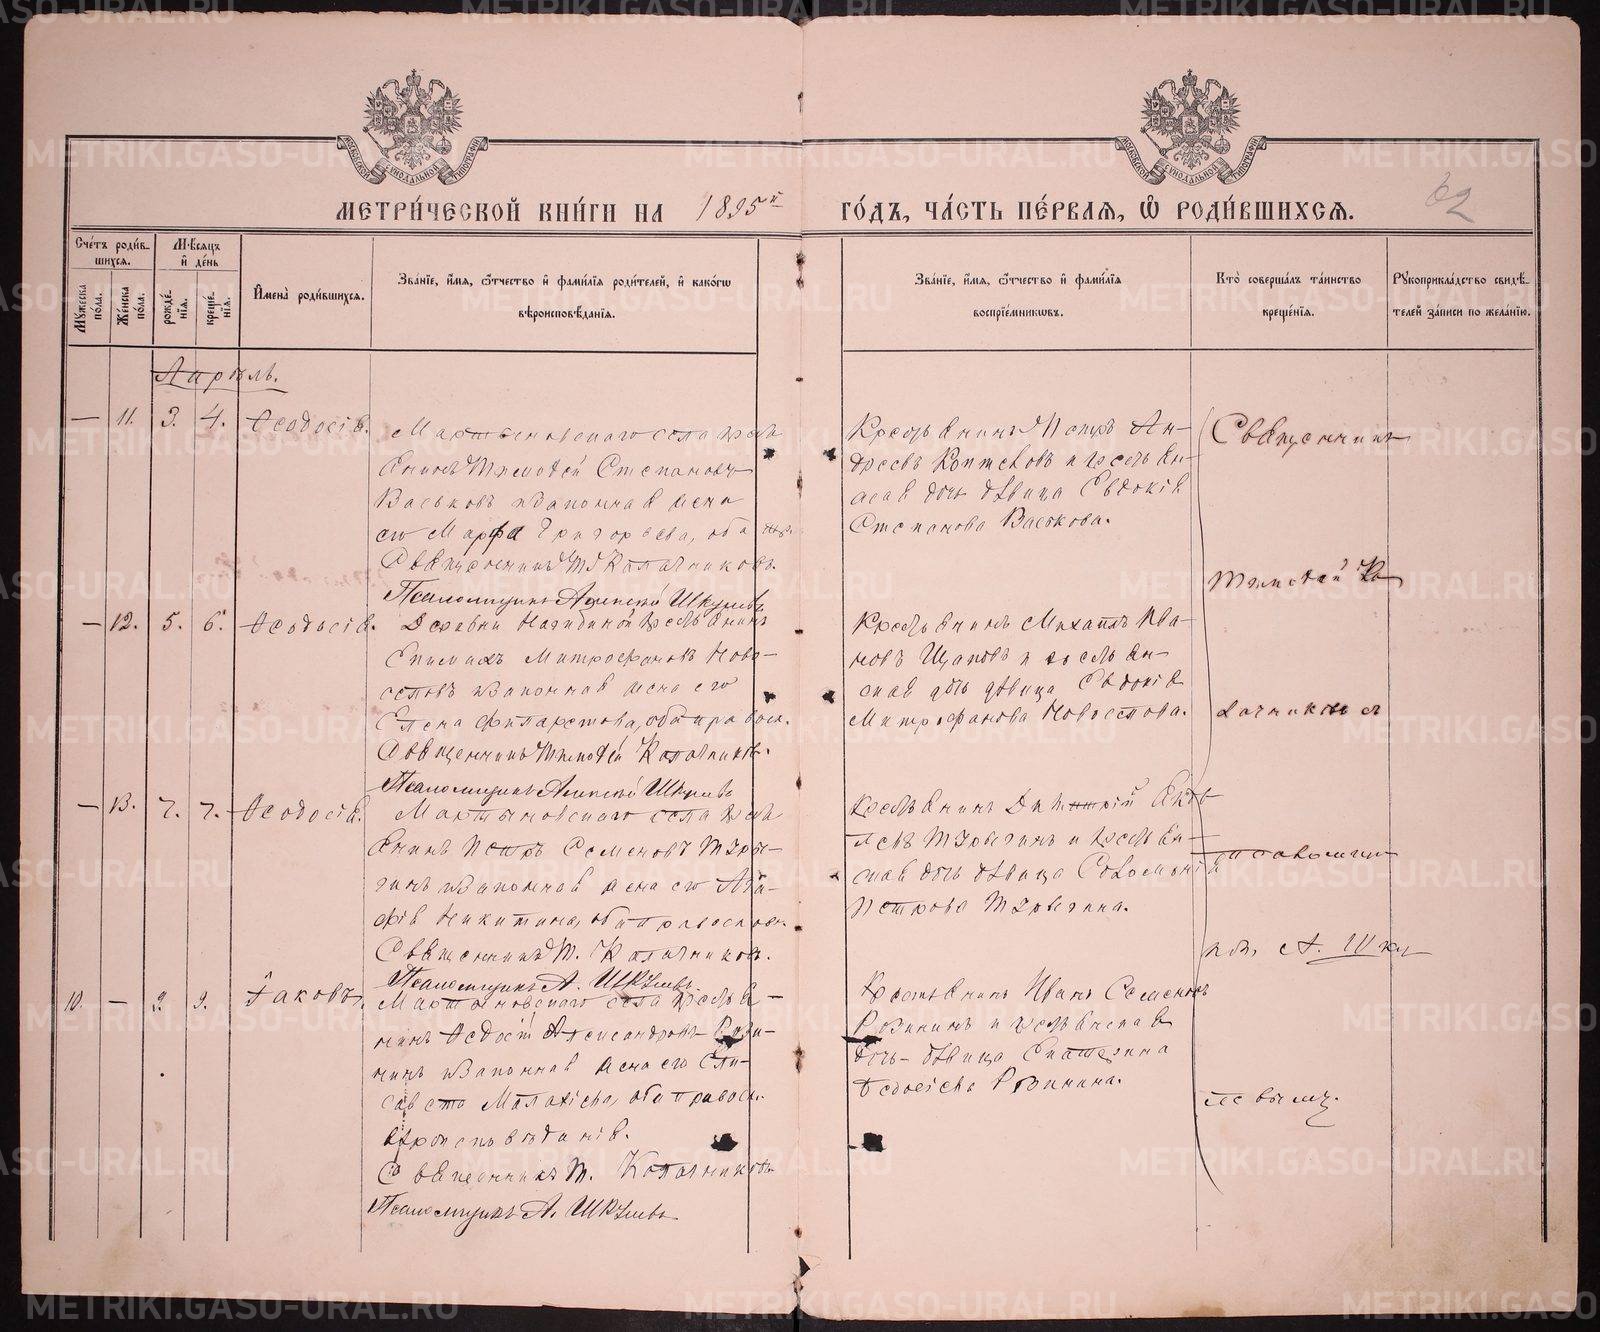 МЕТРИ́ЧЕСКОЙ КНИ́ГИ НА 1895й ГО́ДЪ, ЧА́СТЬ ПЕ́РВАЯ, Ѡ РОДИ́ВШИХСЯ.
62
Сче́тъ роди́вшихся.
Му́жеска по́ла.
Же́нска по́ла.
Мѣ́сяцъ и де́нь
рожде́нія.
креще́нія.
Имена̀ роди́вшихся.
Зва́ніе, и́мя, о́тчество и фами́лія роди́телей, и како́гѡ
вѣроисповѣ́данія.
Зва́ніе, и́мя, о́тчество и фами́лія
воспріе́мниковъ.
Кто̀ соверша́лъ та́инство
креще́нія.
Рукоприкла́дство свидѣ́-
телей за́писи по жела́нію.
Апрѣль.
— 11. 3. 4. Ѳеодосія.
Мартыновскаго села крестья
нинъ Тимофей Степановъ
Васьковъ и законная жена
его Марфа Григорьева, оба
Священникъ Т. Калачниковъ.
Псаломщикъ Алексѣй Шкулевъ
Крестьянинъ Петръ Ан-
дреевъ Коптеловъ и крестьян-
ская дочь дѣвица Евдокія
Степанова Васькова.
— 12. 5. 6. Ѳеодосія.
Деревни крестьянинъ
Митрофановъ Ново-
селовъ и законная жена его
Елена Филаретова, оба правосл.
Священникъ Тимофей Калачниковъ.
Псаломщикъ Алексѣй Шкулевъ
Крестьянинъ Михаилъ Ива-
новъ Щаповъ и крестьян-
ская дочь дѣвица Евдокія
Митрофанова Новоселова.
— 13. 7. 7. Ѳеодосія.
Мартыновскаго села крестья
нинъ Петръ Семеновъ
и законная жена его Ага-
фія Никитина, оба православн.
Священникъ Т. Калачниковъ.
Псаломщикъ А. Шкулевъ.
Крестьянинъ Димитрій
и крестьян-
ская дочь дѣвица Соломонія
Петрова
10. — 9. 9. Іаковъ.
Мартыновскаго села крестья-
нинъ Ѳедосій Александровъ
и законная жена его Ели-
савета Малахіева, оба правосл.
вѣроисповѣданія.
Священникъ Т. Калачниковъ
Псаломщикъ А. Шкулевъ
Крестьянинъ Иванъ Семеновъ
и крестьянская
дочь дѣвица Екатерина
Ѳедосіева
Священникъ
Тимофей Ка
лачниковъ
псаломщи
А. Шку
левымъ.